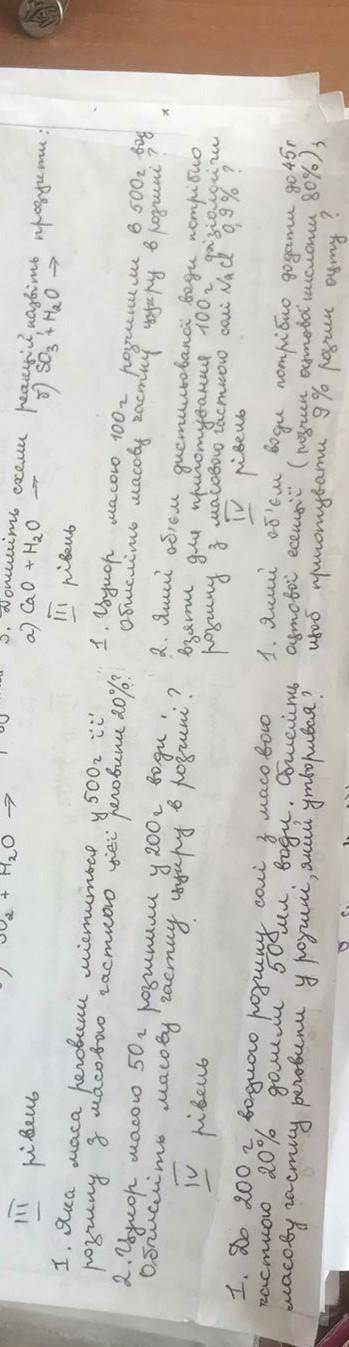 SO₂ + H₂O →
III рівень
1. Яка маса речовини міститься у 500г її
розчину з масовою часткою цієї речовини 20%?
2. Цукор масою 50г розчинили у 200г води.
Обчисліть масову частку цукру в розчині?
IV рівень
1. До 200 г водного розчину солі з масовою
часткою 20% долили 50 мл води. Обчисліть
масову частку речовини у розчині, який утворився?
3. Допишіть схеми реакцій, назвіть продукти:
а) CaO + H₂O → б) SO₃ + H₂O →
III рівень
1. Цукор масою 100г розчинили в 500г води
Обчисліть масову частку цукру в розчині?
2. Який об'єм дистильованої води потрібно
взяти для приготування 100г фізіологічн
розчину з масовою часткою солі NaCl 0,9%?
IV рівень
1. Який об'єм води потрібно додати до 45г
оцтової есенції (розчин оцтової кислоти 80%),
щоб приготувати 9% розчин оцту?